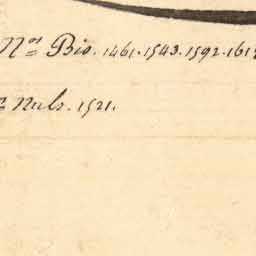 Nos Bis. 1461. 1543. 1592. 161
Nals. 1521.